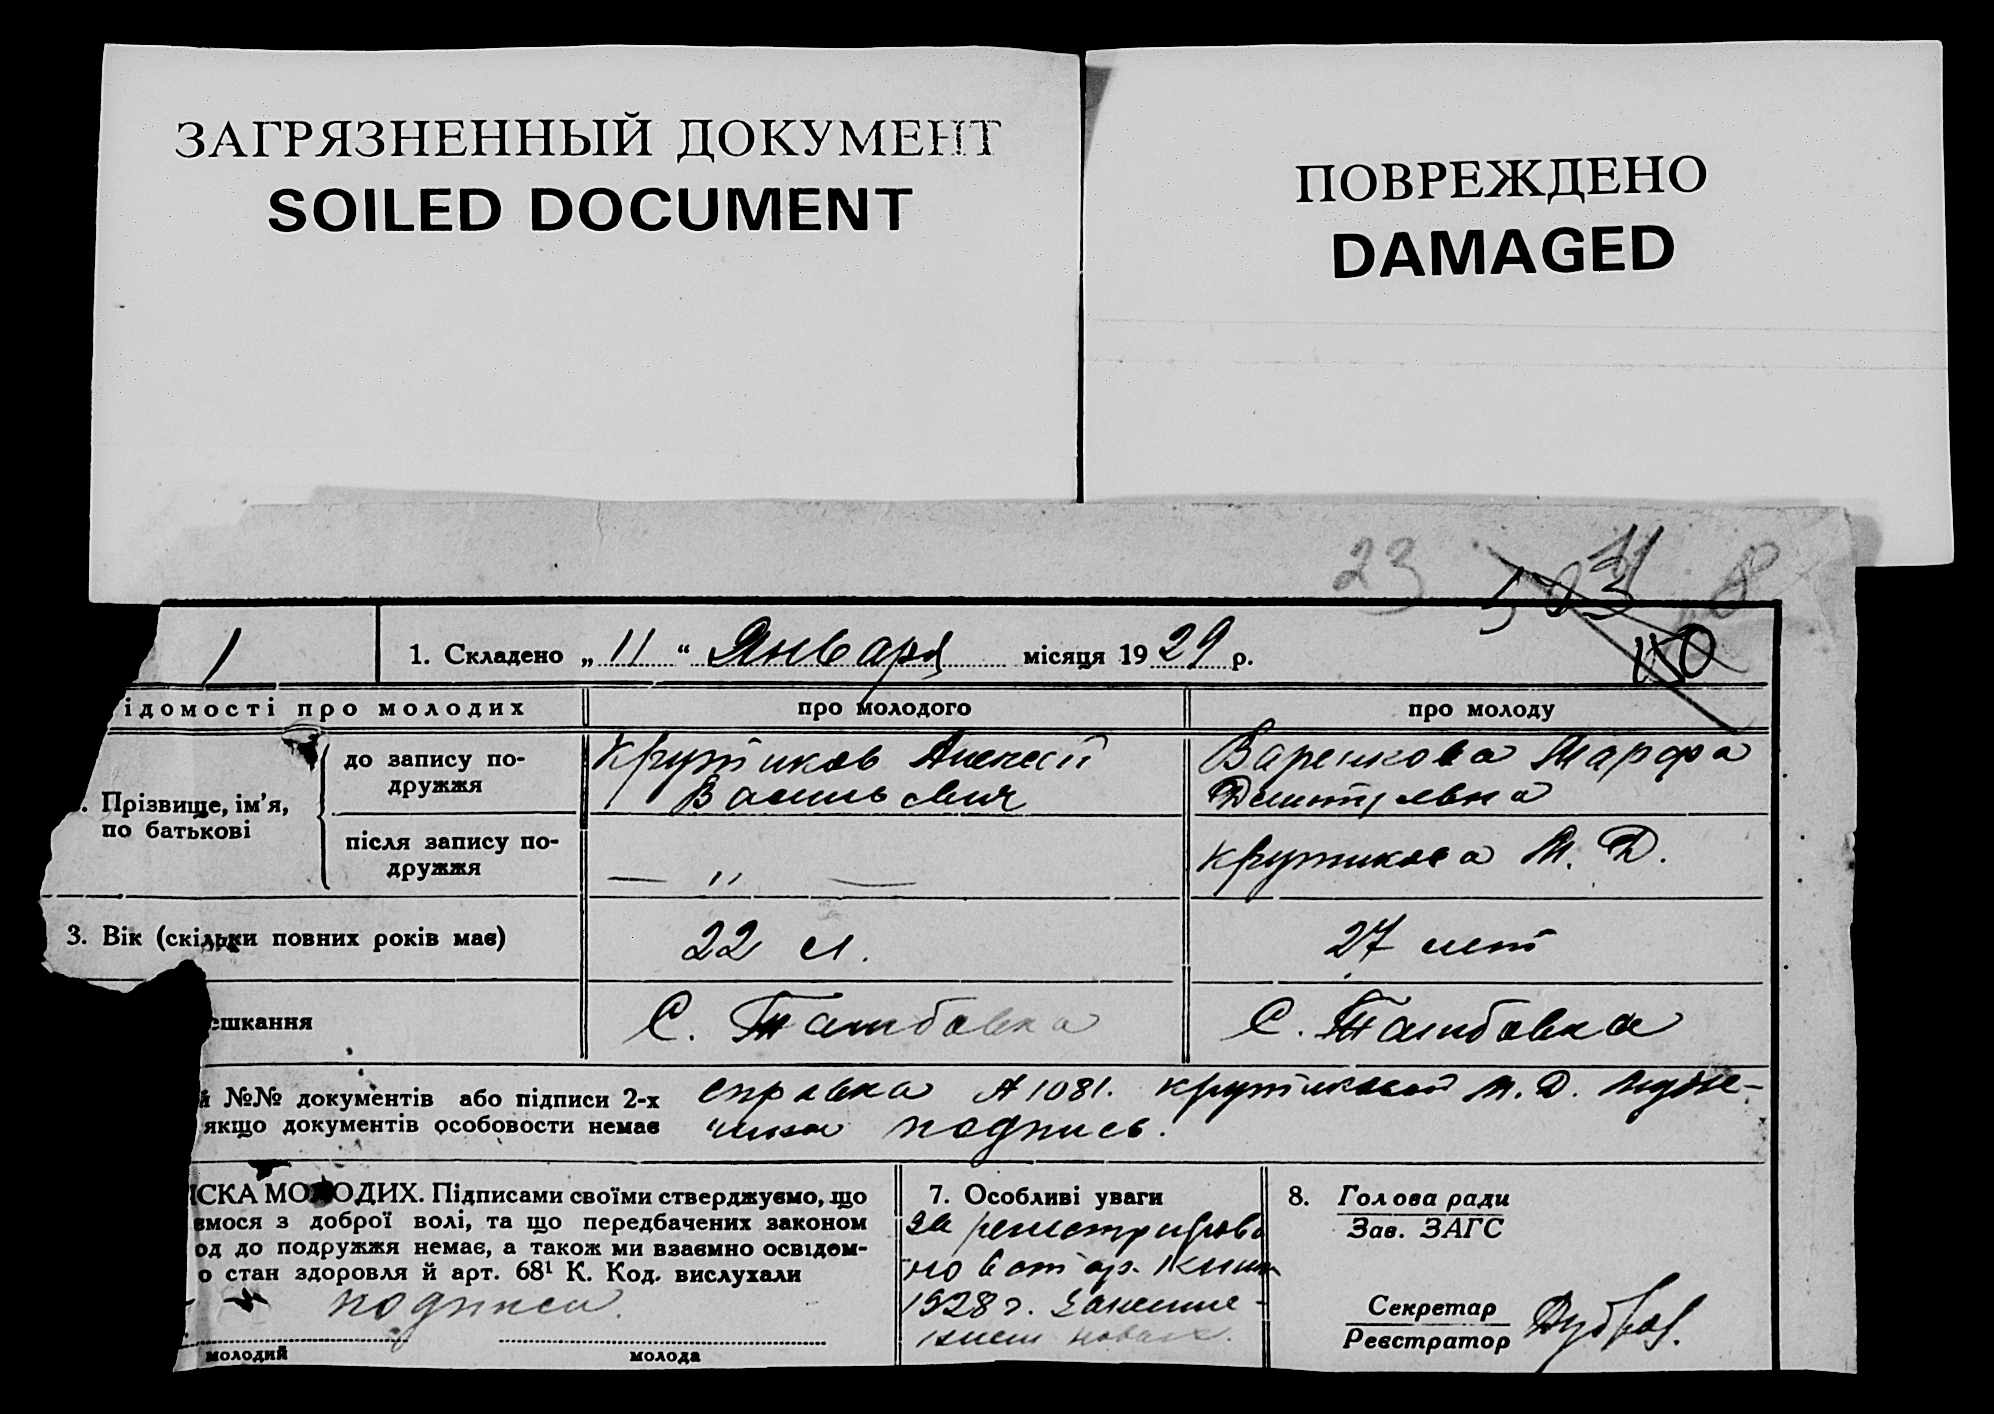 ЗАГРЯЗНЕННЫЙ ДОКУМЕНТ
SOILED DOCUMENT
ПОВРЕЖДЕНО
DAMAGED
23
503
8
1
1. Складено „ 11 “ Января місяця 1929 р.
ідомості про молодих
про молодого
про молоду
Прізвище, ім’я,
по батькові
до запису по-
дружжя
Крутиков Алексей
Васильевич
Варенкова Марфа
Дмитревна
після запису по-
дружжя
— " —
Крутикова М. Д.
3. Вік (скільки повних років має)
22 л.
27 лет
ешкання
С. Тамбовка
С. Тамбовка
й №№ документів або підписи 2-х
якщо документів особовости немає
справка №1081. Крутиковой М. Д.
подпись.
ІСКА МОЛОДИХ. Підписами своїми стверджуємо, що
ємося з доброї волі, та що передбачених законом
од до подружжя немає, а також ми взаємно освідом-
о стан здоровля й арт. 68¹ К. Код. вислухали
подписи
молодий
молода
7. Особливі уваги
за регистрирова
но в ст гр. книги
1928 г.
8. Голова ради
Зав. ЗАГС
Секретар
Реєстратор